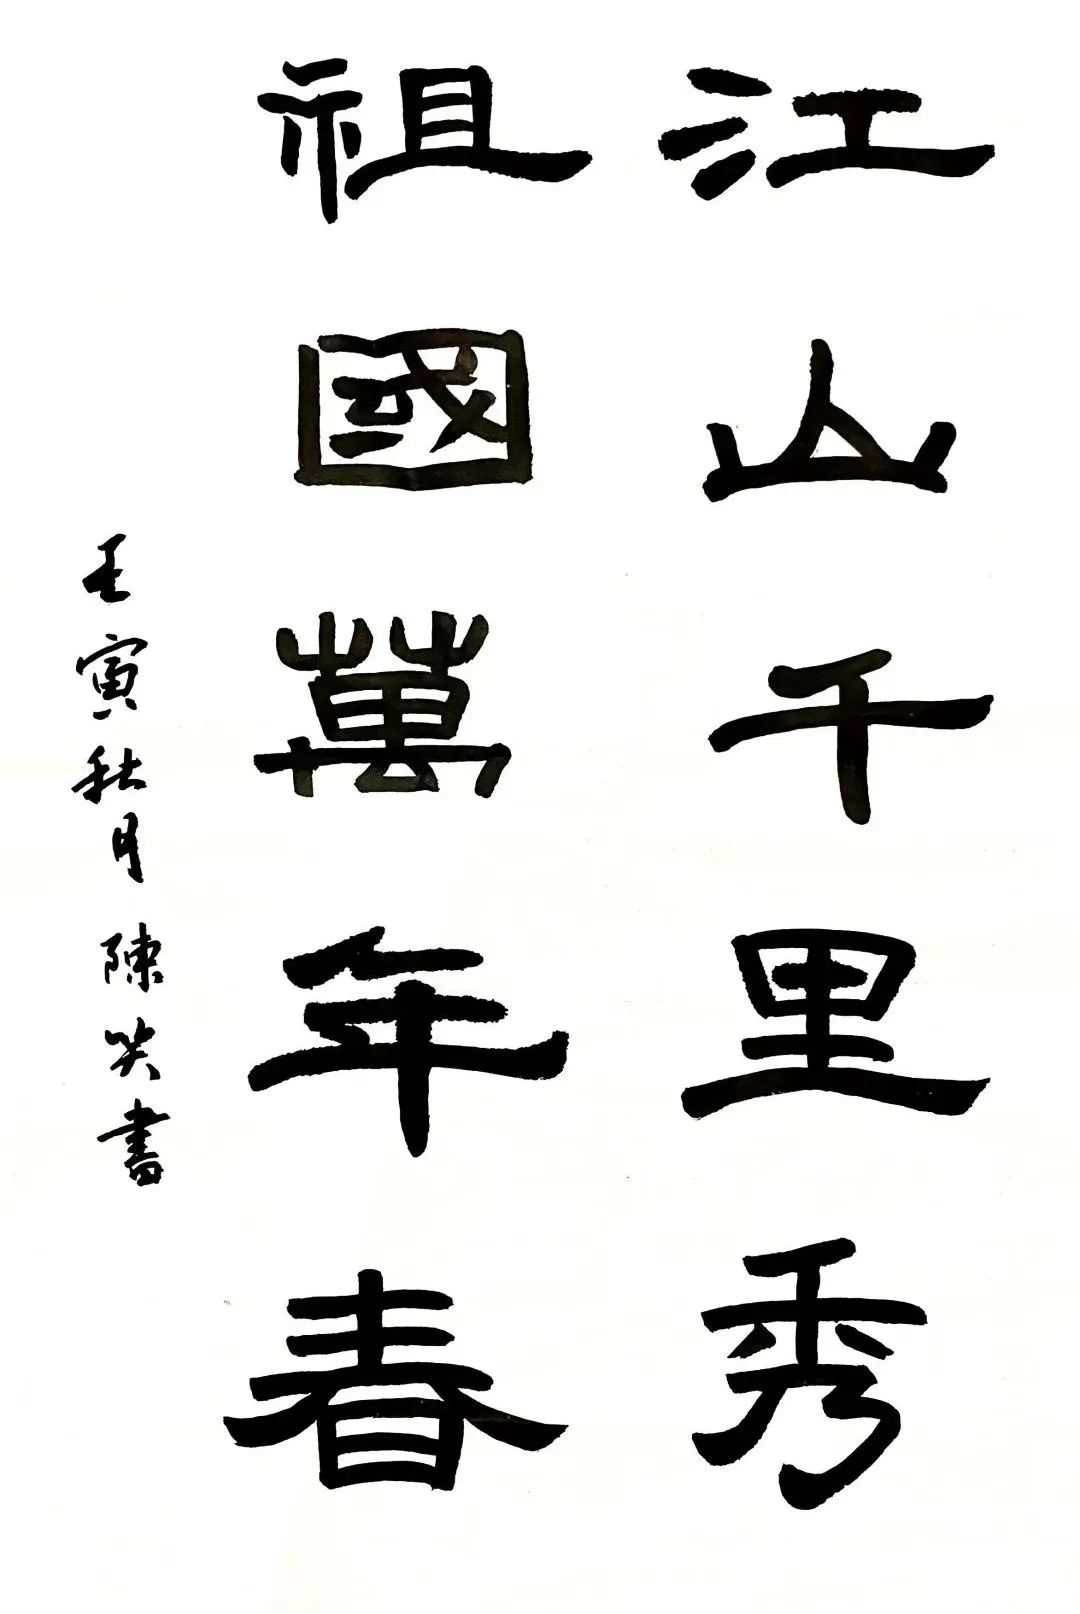 江山千里秀
祖國萬年春
壬寅秋月陳笑書